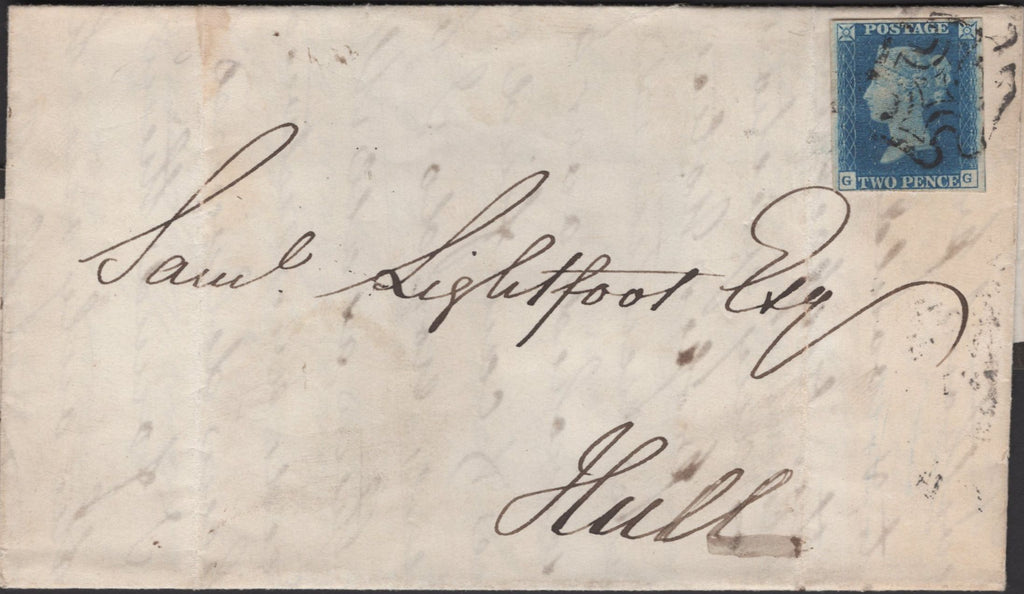 POSTAGE
G TWO PENCE G
Saml. Lightfoot Esq
Hull